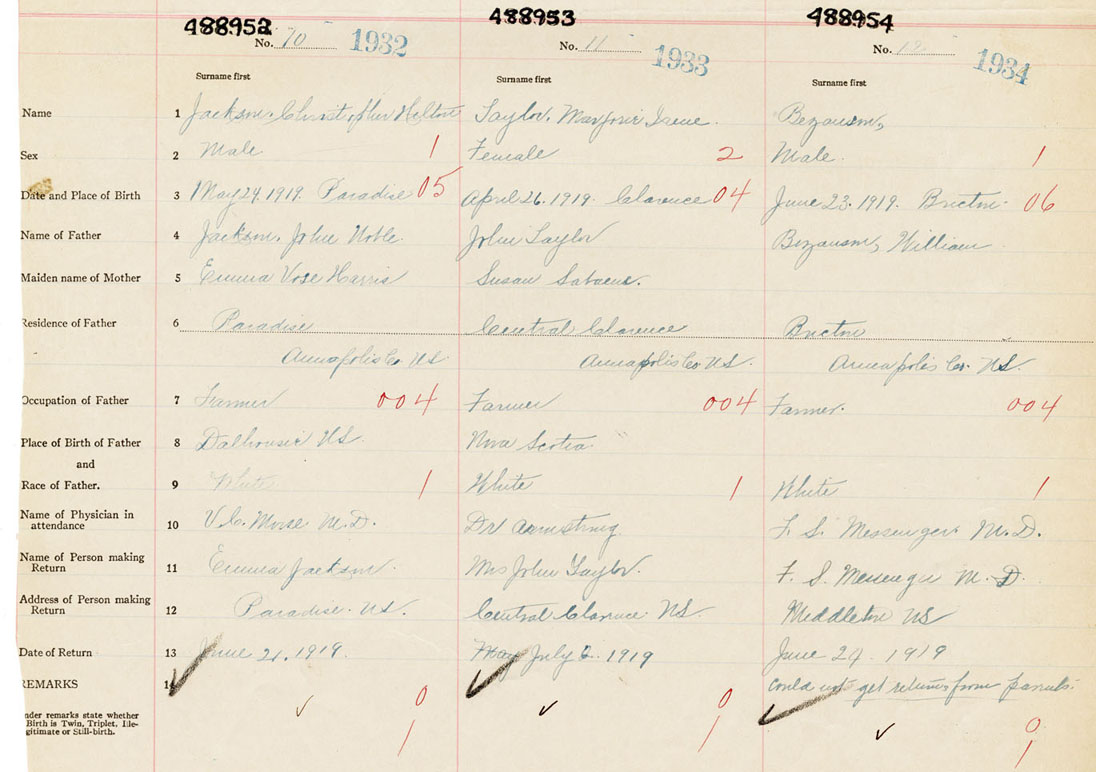 488952 488953 488954
No. 10 1932 No. 11 1933 No. 12 1934
Surname first Surname first Surname first
Name 1 Jackson, Christopher Hilton Taylor, Marjorie Irene. Bezanson,
Sex 2 Male 1 Female 2 Male. 1
Date and Place of Birth 3 May 24. 1919. Paradise 05 April 26. 1919. Clarence 04 June 23. 1919. Bricton. 06
Name of Father 4 Jackson, John Noble. John Taylor Bezanson, William
Maiden name of Mother 5 Emma Vose Harris Susan
Residence of Father 6 Paradise Central Clarence Bricton
Annapolis Co. NS Annapolis Co. NS. Annapolis Co. NS.
Occupation of Father 7 Farmer 004 Farmer 004 Farmer. 004
Place of Birth of Father 8 Dalhousie NS. Nova Scotia
and
Race of Father. 9 White 1 White 1 White 1
Name of Physician in
attendance 10 V.C. Morse M.D. Dr Armstrong F. S. Messenger M.D.
Name of Person making
Return 11 Emma Jackson. Mrs John Taylor. F. S. Messenger M.D.
Address of Person making
Return 12 Paradise. NS. Central Clarence NS. Middleton NS
Date of Return 13 June 21, 1919. May July 2 1919 June 24. 1919
REMARKS could not get returns from parents.
0 0 0
nder remarks state whether
Birth is Twin, Triplet, Ille-
gitimate or Still-birth. 1 1 1